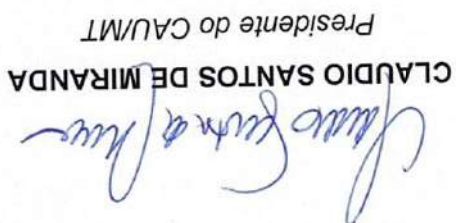 CLAUDIO SANTOS DE MIRANDA
Presidente do CAU/MT